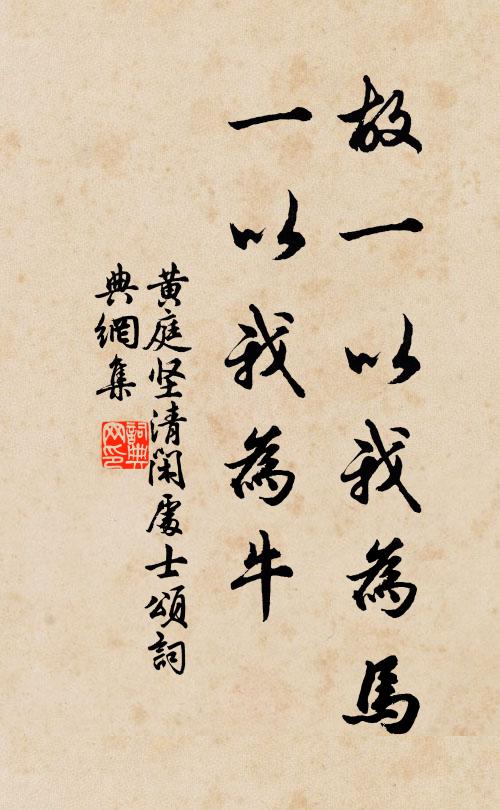 故一以我為馬
一以我為牛
黄庭坚清閑處士頌詞
典網集
詞典網印